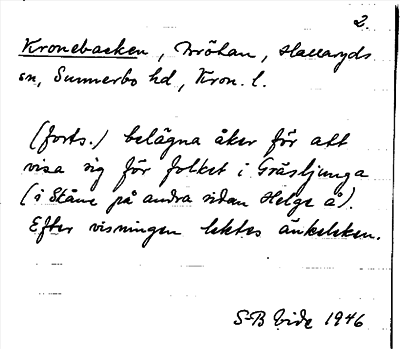 2.
Kronebacken, Bröhan, Hallaryds
sn, Sunnerbo hd, Kron. l.
(forts.) belägna åker för att
visa sig för folket i Gräsljunga
(i Skåne på andra sidan Helge å).
Efter visningen lektes änkeleken.
S-B Vide 1946